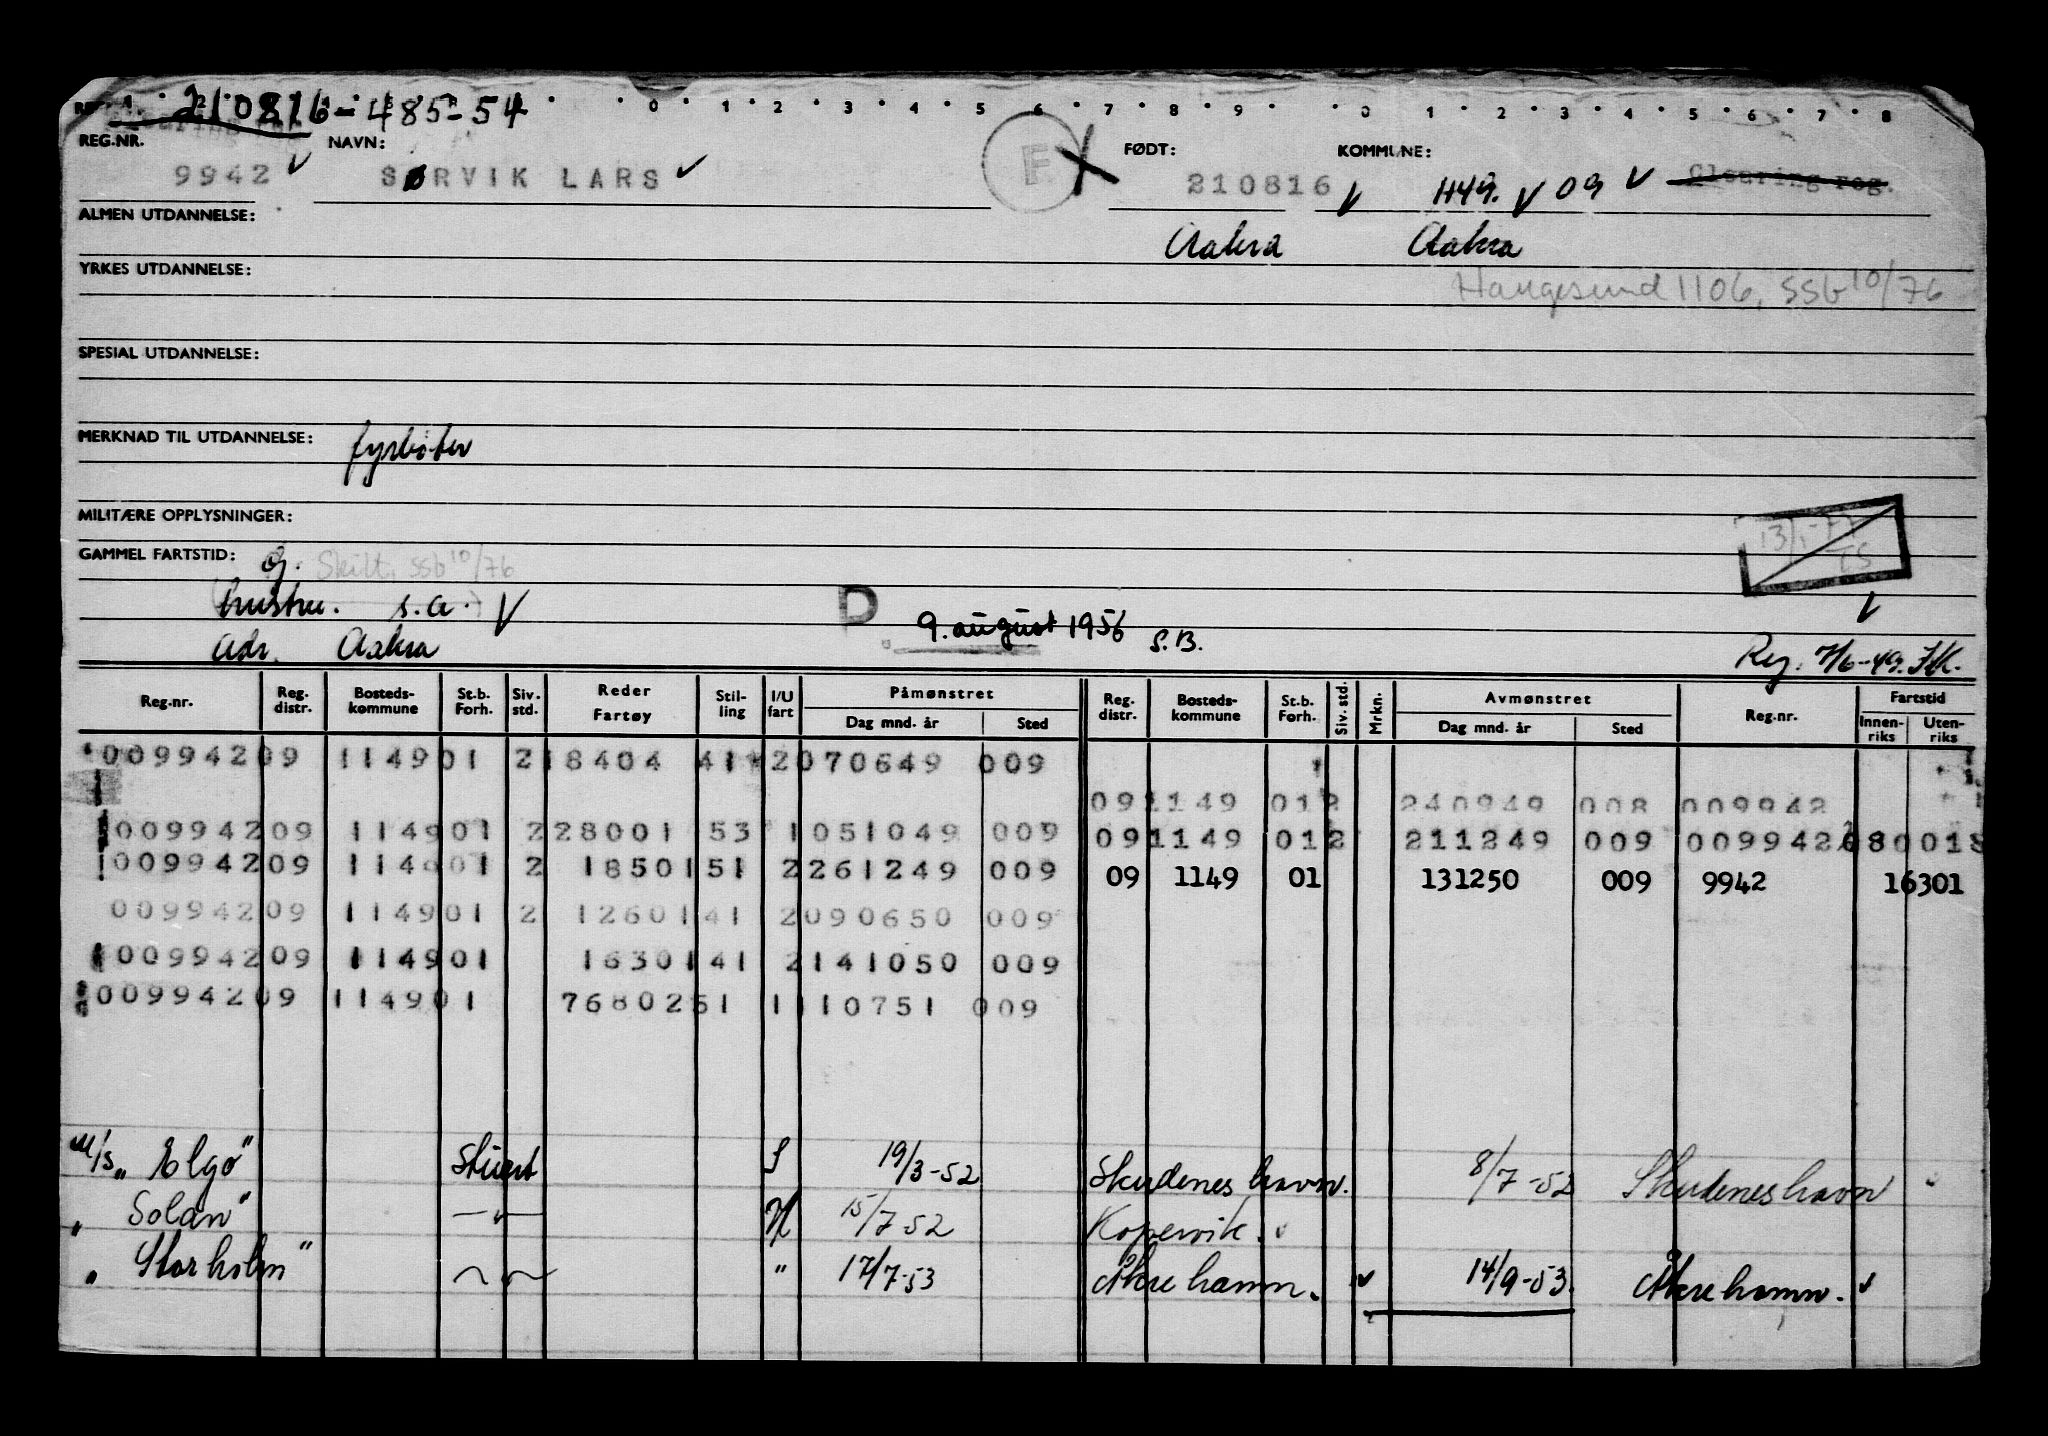 210816-485-54
0 1 2 3 4 5 6 7 8 9 0 1 2 3 4 5 6 7 8
REG.NR. NAVN: FØDT: KOMMUNE:
9942 SØRVIK LARS F 210816 1149. 09 Clearing reg.
ALMEN UTDANNELSE:
Aakra Aakra
YRKES UTDANNELSE:
Haugesund 1106, SSb 10/76
SPESIAL UTDANNELSE:
MERKNAD TIL UTDANNELSE: fyrbøter
MILITÆRE OPPLYSNINGER:
13/1-77
GAMMEL FARTSTID: g. Skilt. ssb 10/76
hustru. s.a.
D. 9. august 1956 S.B.
Adr. Aakra Reg. 7/6-49.
Reg.nr. Reg. distr. Bosteds-kommune St.b. Forh. Siv. std. Reder Fartøy Stil-ling I/U fart Påmønstret Dag mnd. år Sted Reg. distr. Bosteds-kommune St.b. Forh. Siv. std. Mrkn. Avmønstret Dag mnd. år Sted Reg.nr. Fartstid Innen-riks Uten-riks
009942 09 1149 01 2 18404 41 2 070649 009
09 1149 01 2 240949 008 009942
009942 09 1149 01 2 28001 53 1 051049 009 09 1149 01 2 211249 009 009942 680018
009942 09 1149 01 2 18501 51 2 261249 009 09 1149 01 131250 009 9942 16301
009942 09 1149 01 2 12601 41 2 090650 009
009942 09 1149 01 16301 41 2 141050 009
009942 09 1149 01 76802 51 1 110751 009
M/s "Elgo" Stuert 19/3-52 Skudeneshavn. 8/7-52 Skudeneshavn
" Solan" 15/7-52 Kopervik.
" Storholm" " 17/7-53 Åkrehamn. 14/9-53. Åkrehamn.